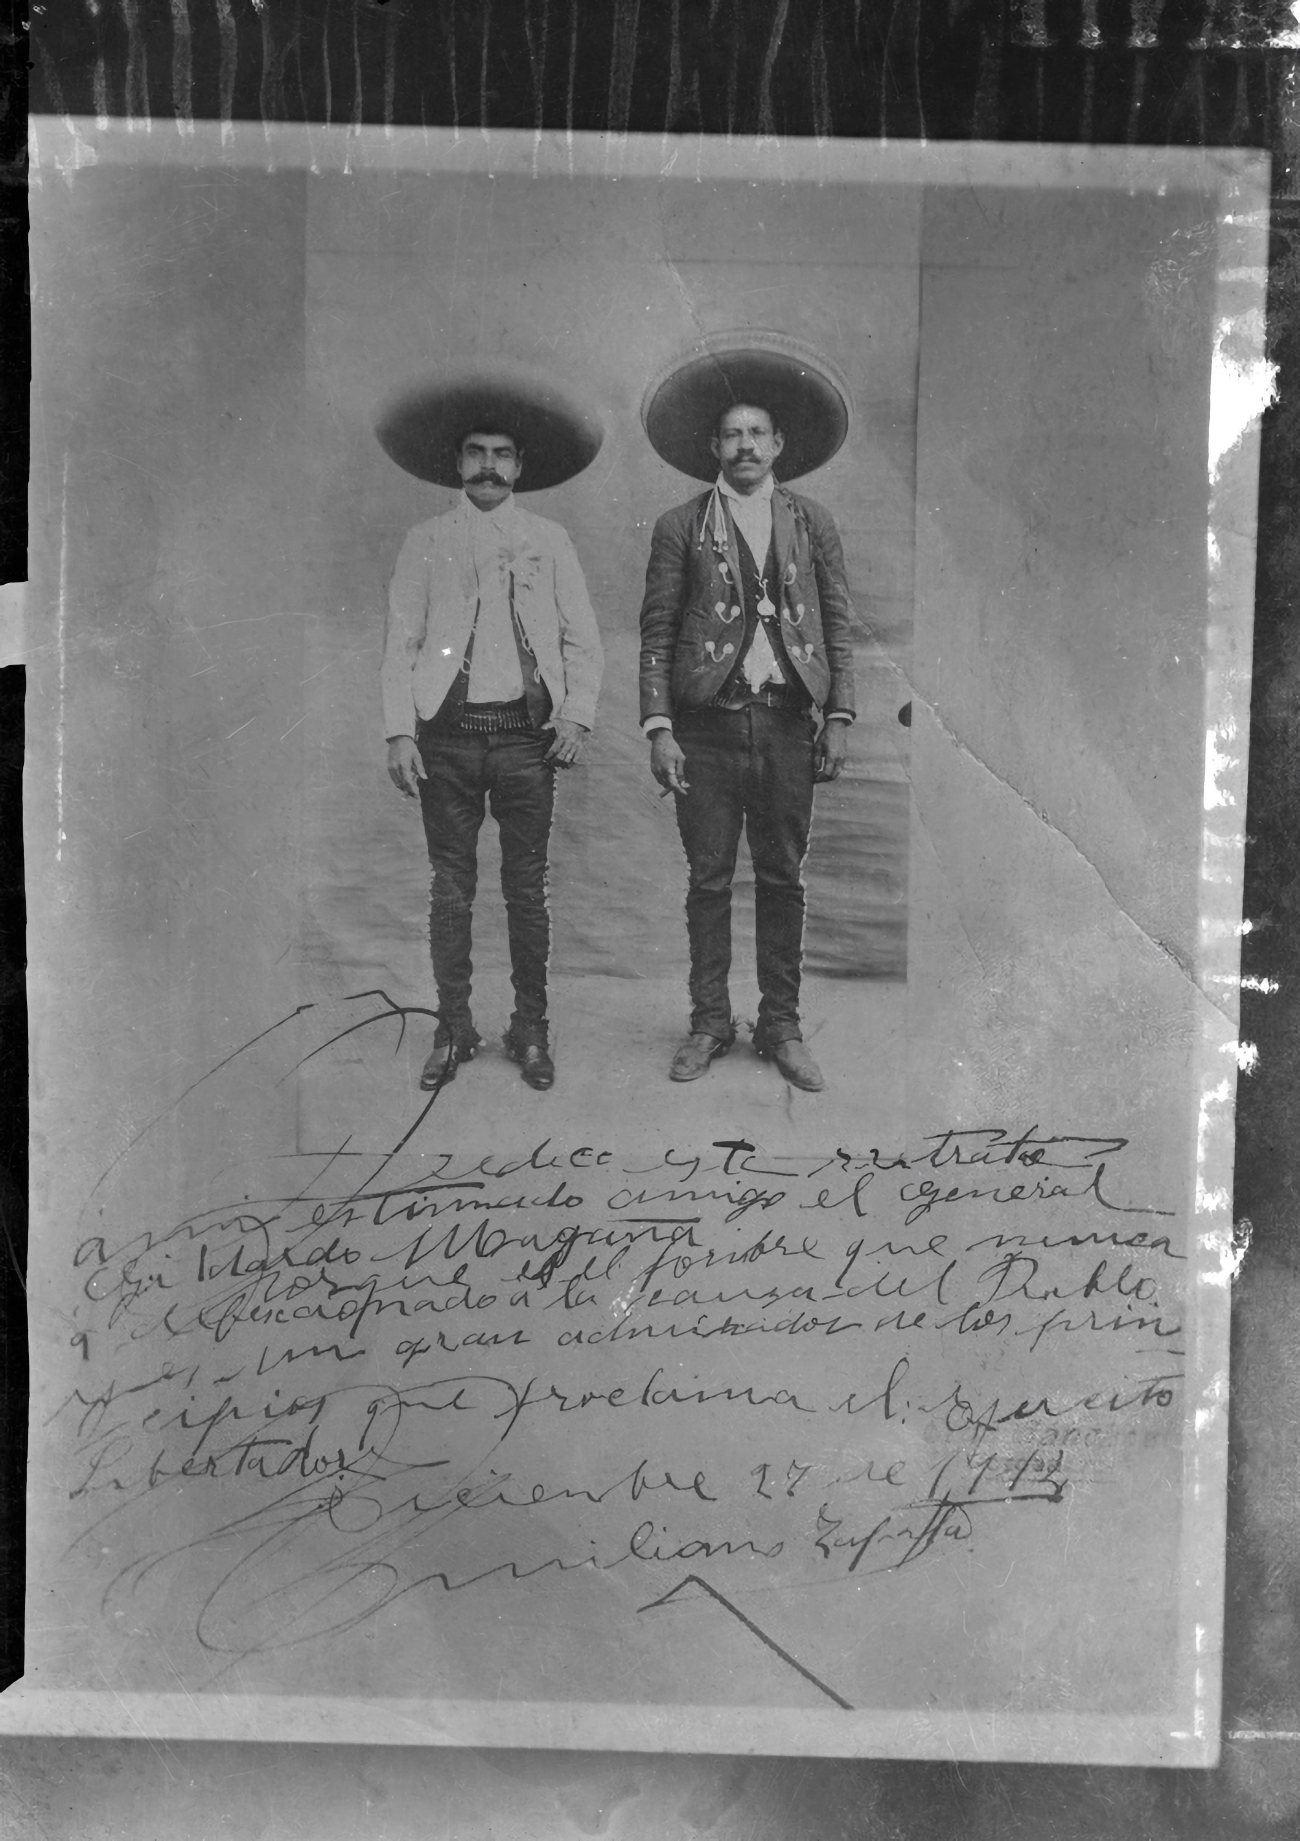 Dedico este retrato
a mi estimado amigo el General
Gildardo Magaña
porque es el hombre que nunca
a defecionado a la causa del Pueblo
y es un gran admirador de los prin
cipios que proclama el Ejercito
Libertador
Diciembre 27 de 191
Emiliano Zapata